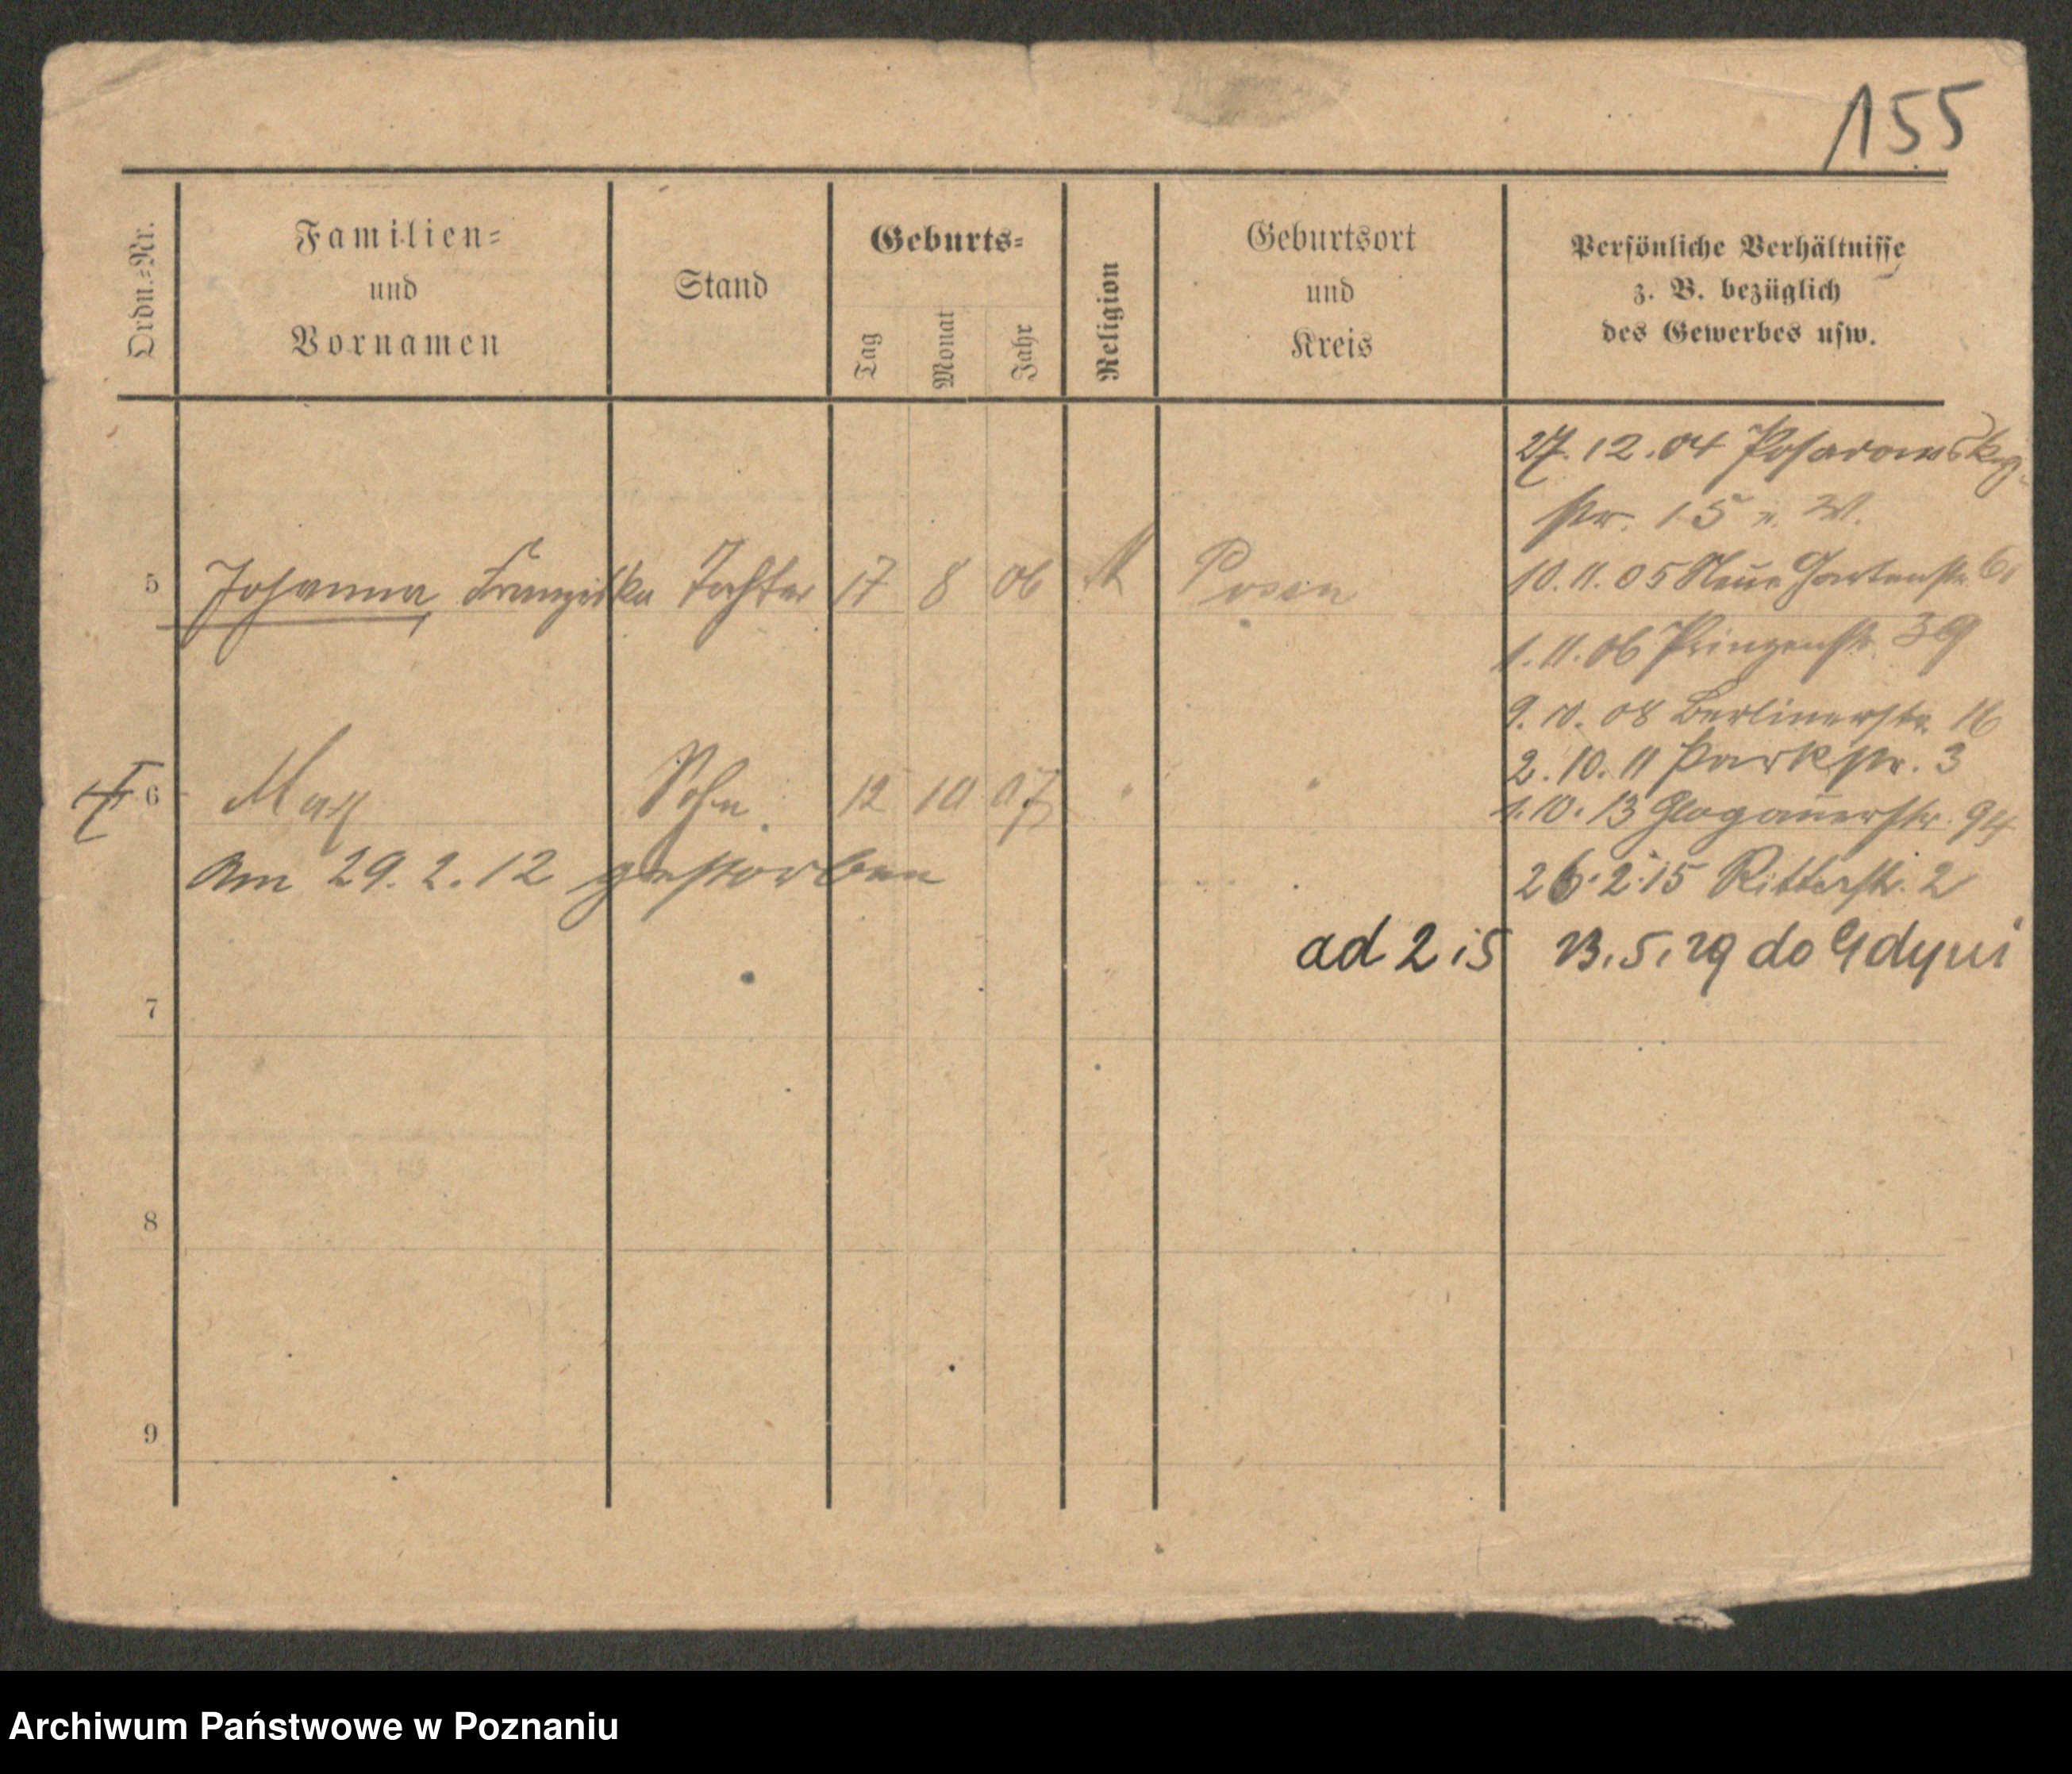 155
Ordn.-Nr.
Familien-
und
Vornamen
Stand
Geburts-
Tag
Monat
Jahr
Religion
Geburtsort
und
Kreis
Persönliche Verhältnisse
z. B. bezüglich
des Gewerbes usw.
27.12.04
str. 15 b. W.
5 Johanna, Franziska Tochter 17 8 06 Posen
10.11.05 Neue Gartenstr.
1.11.06 Prinzenstr. 39
9.10.08 Berlinerstr. 16
2.10.11 Parkstr. 3
6 Max Sohn 12 10 07 "
1.10.13 Glogauerstr. 94
Am 29.2.12 gestorben
26.2.15 Ritterstr. 2
ad 2 i 5 23.5.29 do Gdyni
7
8
9
Archiwum Państwowe w Poznaniu